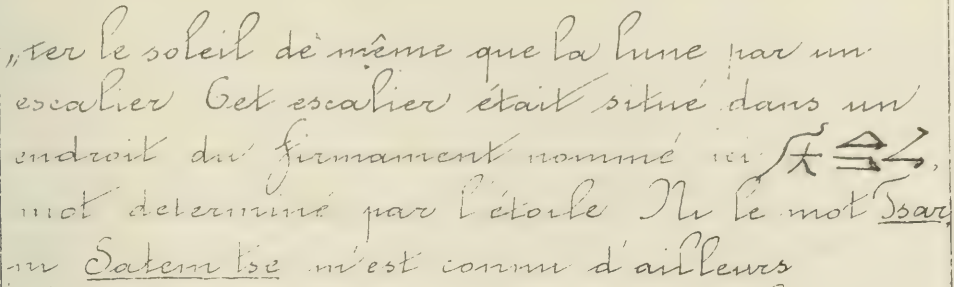 „ter le soleil de même que la lune par un
escalier Cet escalier était situé dans un
endroit du firmament nommé ici
mot determiné par l'étoile Ni le mot Tsar
ni Satem tse m'est connu d'ailleurs